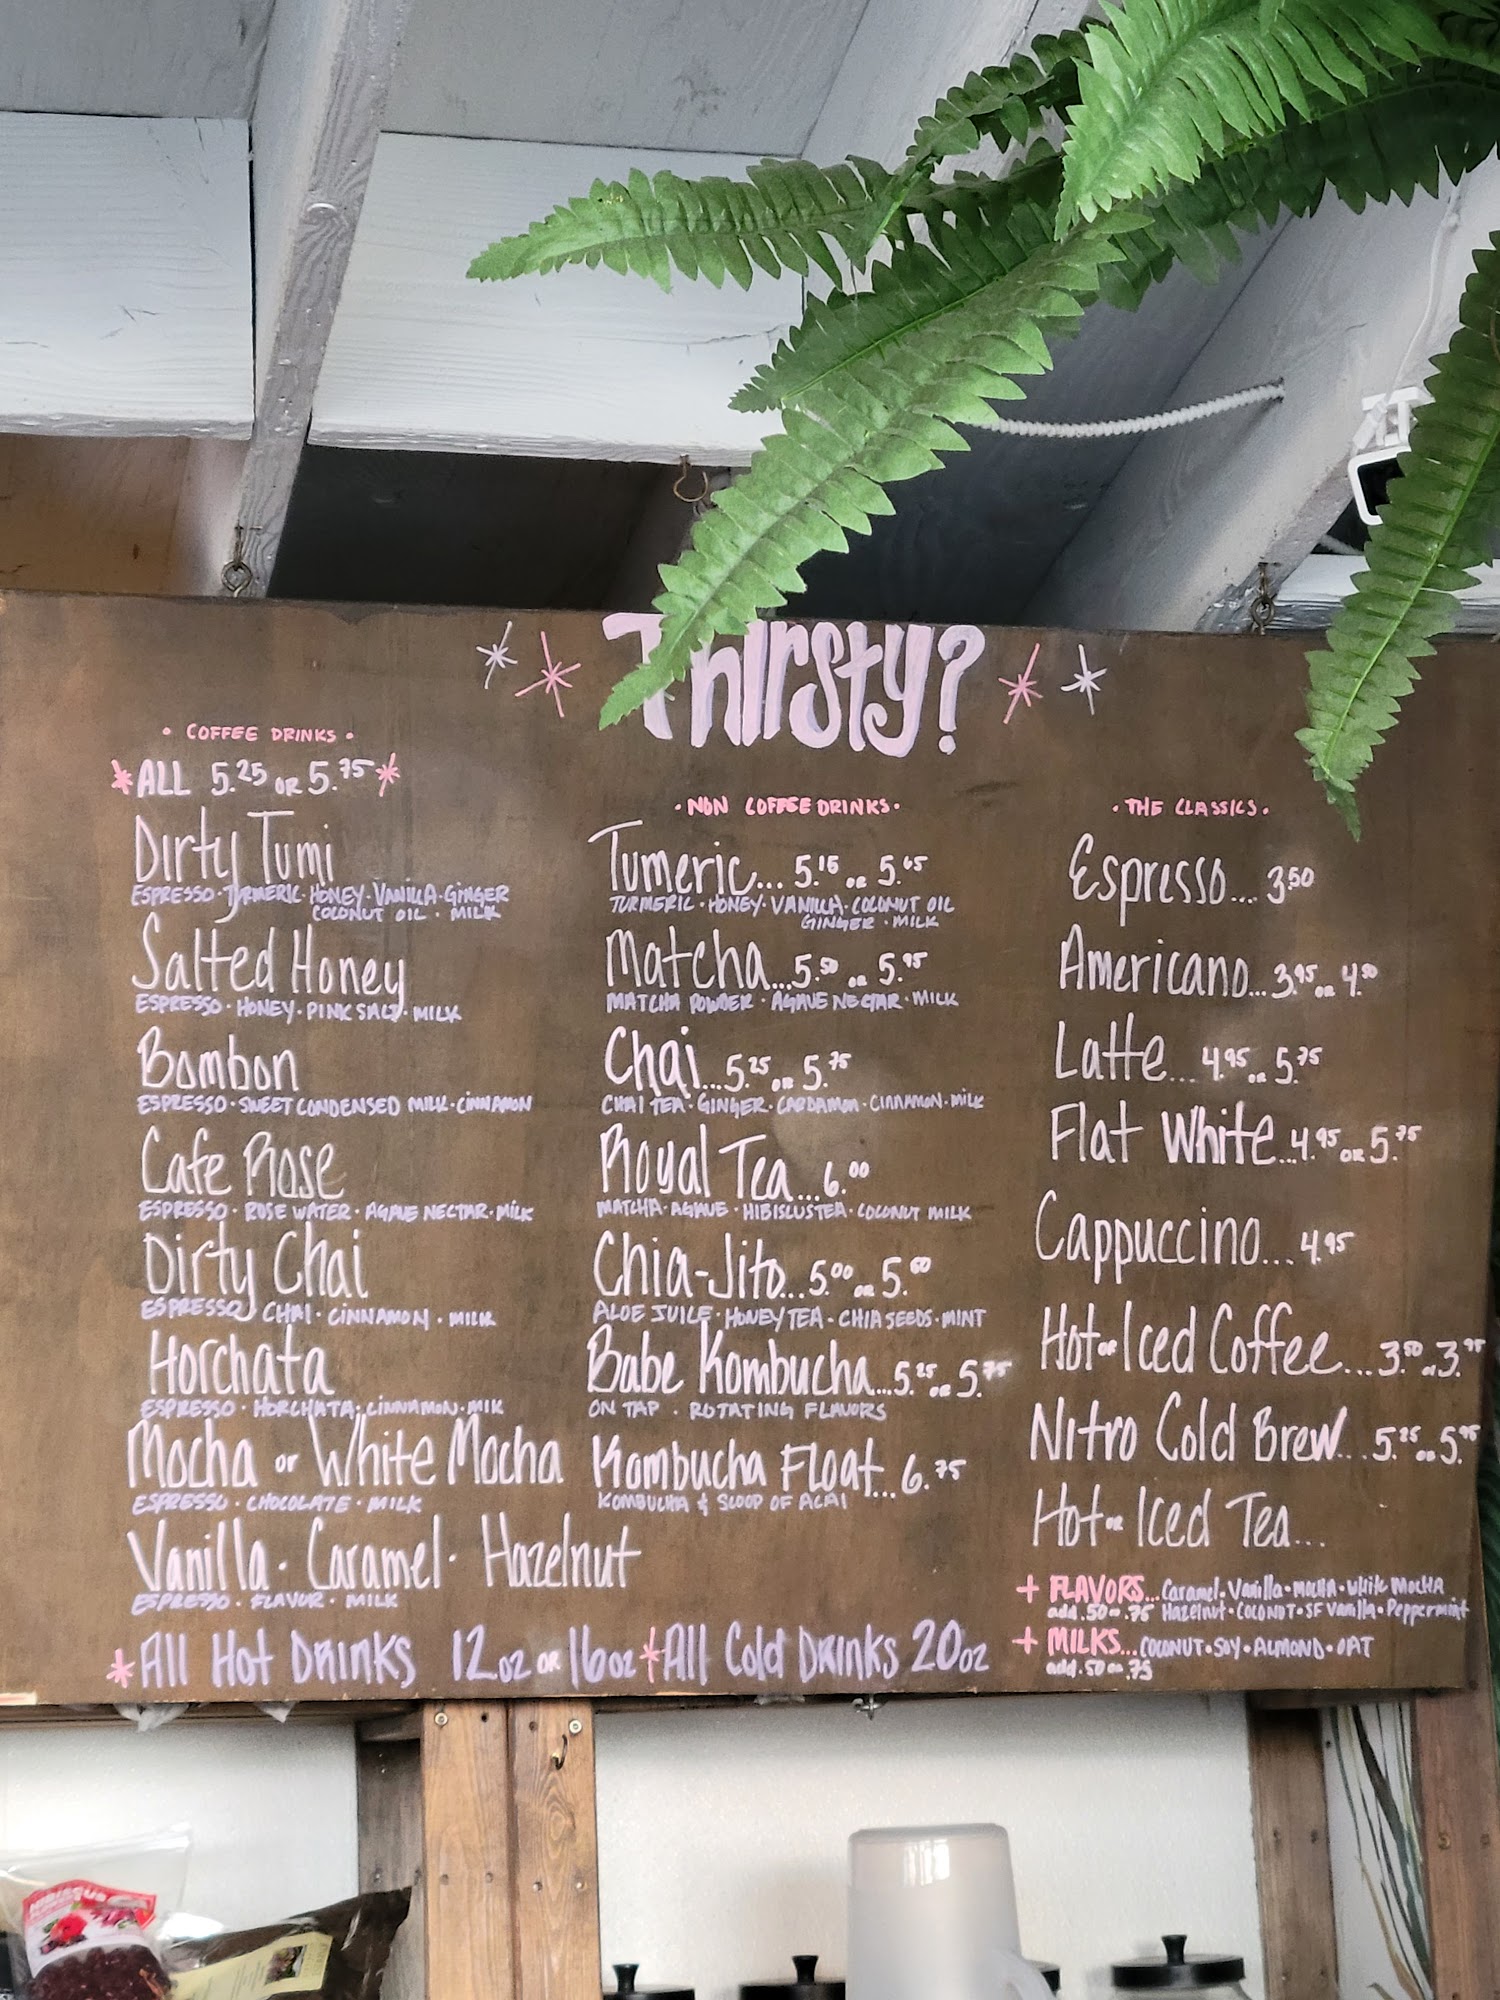 Thirsty?
• COFFEE DRINKS •
*ALL 5.25 OR 5.75*
Dirty Tumi
ESPRESSO • TURMERIC • HONEY • VANILLA • GINGER
COCONUT OIL • MILK
Salted Honey
ESPRESSO • HONEY • PINK SALT • MILK
Bombon
ESPRESSO • SWEET CONDENSED MILK • CINNAMON
Cafe Rose
ESPRESSO • ROSE WATER • AGAVE NECTAR • MILK
Dirty Chai
ESPRESSO CHAI • CINNAMON • MILK
Horchata
ESPRESSO • HORCHATA • CINNAMON • MILK
Mocha or White Mocha
ESPRESSO • CHOCOLATE • MILK
Vanilla • Caramel • Hazelnut
ESPRESSO • FLAVOR • MILK
• NON COFFEE DRINKS •
Tumeric... 5.15 or 5.65
TURMERIC • HONEY • VANILLA • COCONUT OIL
GINGER • MILK
Matcha...5.50 or 5.95
MATCHA POWDER • AGAVE NECTAR • MILK
Chai...5.25 OR 5.75
CHAI TEA • GINGER • CARDAMON • CINNAMON • MILK
Royal Tea...6.00
MATCHA • AGAVE • HIBISCUS TEA • COCONUT MILK
Chia-Jito...5.00 or 5.60
ALOE JUICE • HONEY TEA • CHIA SEEDS • MINT
Babe Kombucha...5.25 or 5.75
ON TAP • ROTATING FLAVORS
Kombucha Float...6.75
KOMBUCHA & SCOOP OF ACAI
• THE CLASSICS •
Espresso... 3.50
Americano...3.95 or 4.50
Latte... 4.95 or 5.75
Flat White...4.95 OR 5.75
Cappuccino...4.95
Hot or Iced Coffee...3.50 or 3.95
Nitro Cold Brew...5.25 or 5.95
Hot or Iced Tea...
+ FLAVORS...Caramel • Vanilla • MOCHA • White MOCHA
add .50 or .75 Hazelnut • COCONUT • SF Vanilla • Peppermint
+ MILKS...COCONUT • SOY • ALMOND • OAT
add .50 or .75
*All Hot DRINKS 12oz OR 16oz *All Cold DRINKS 20oz
HIBISCUS